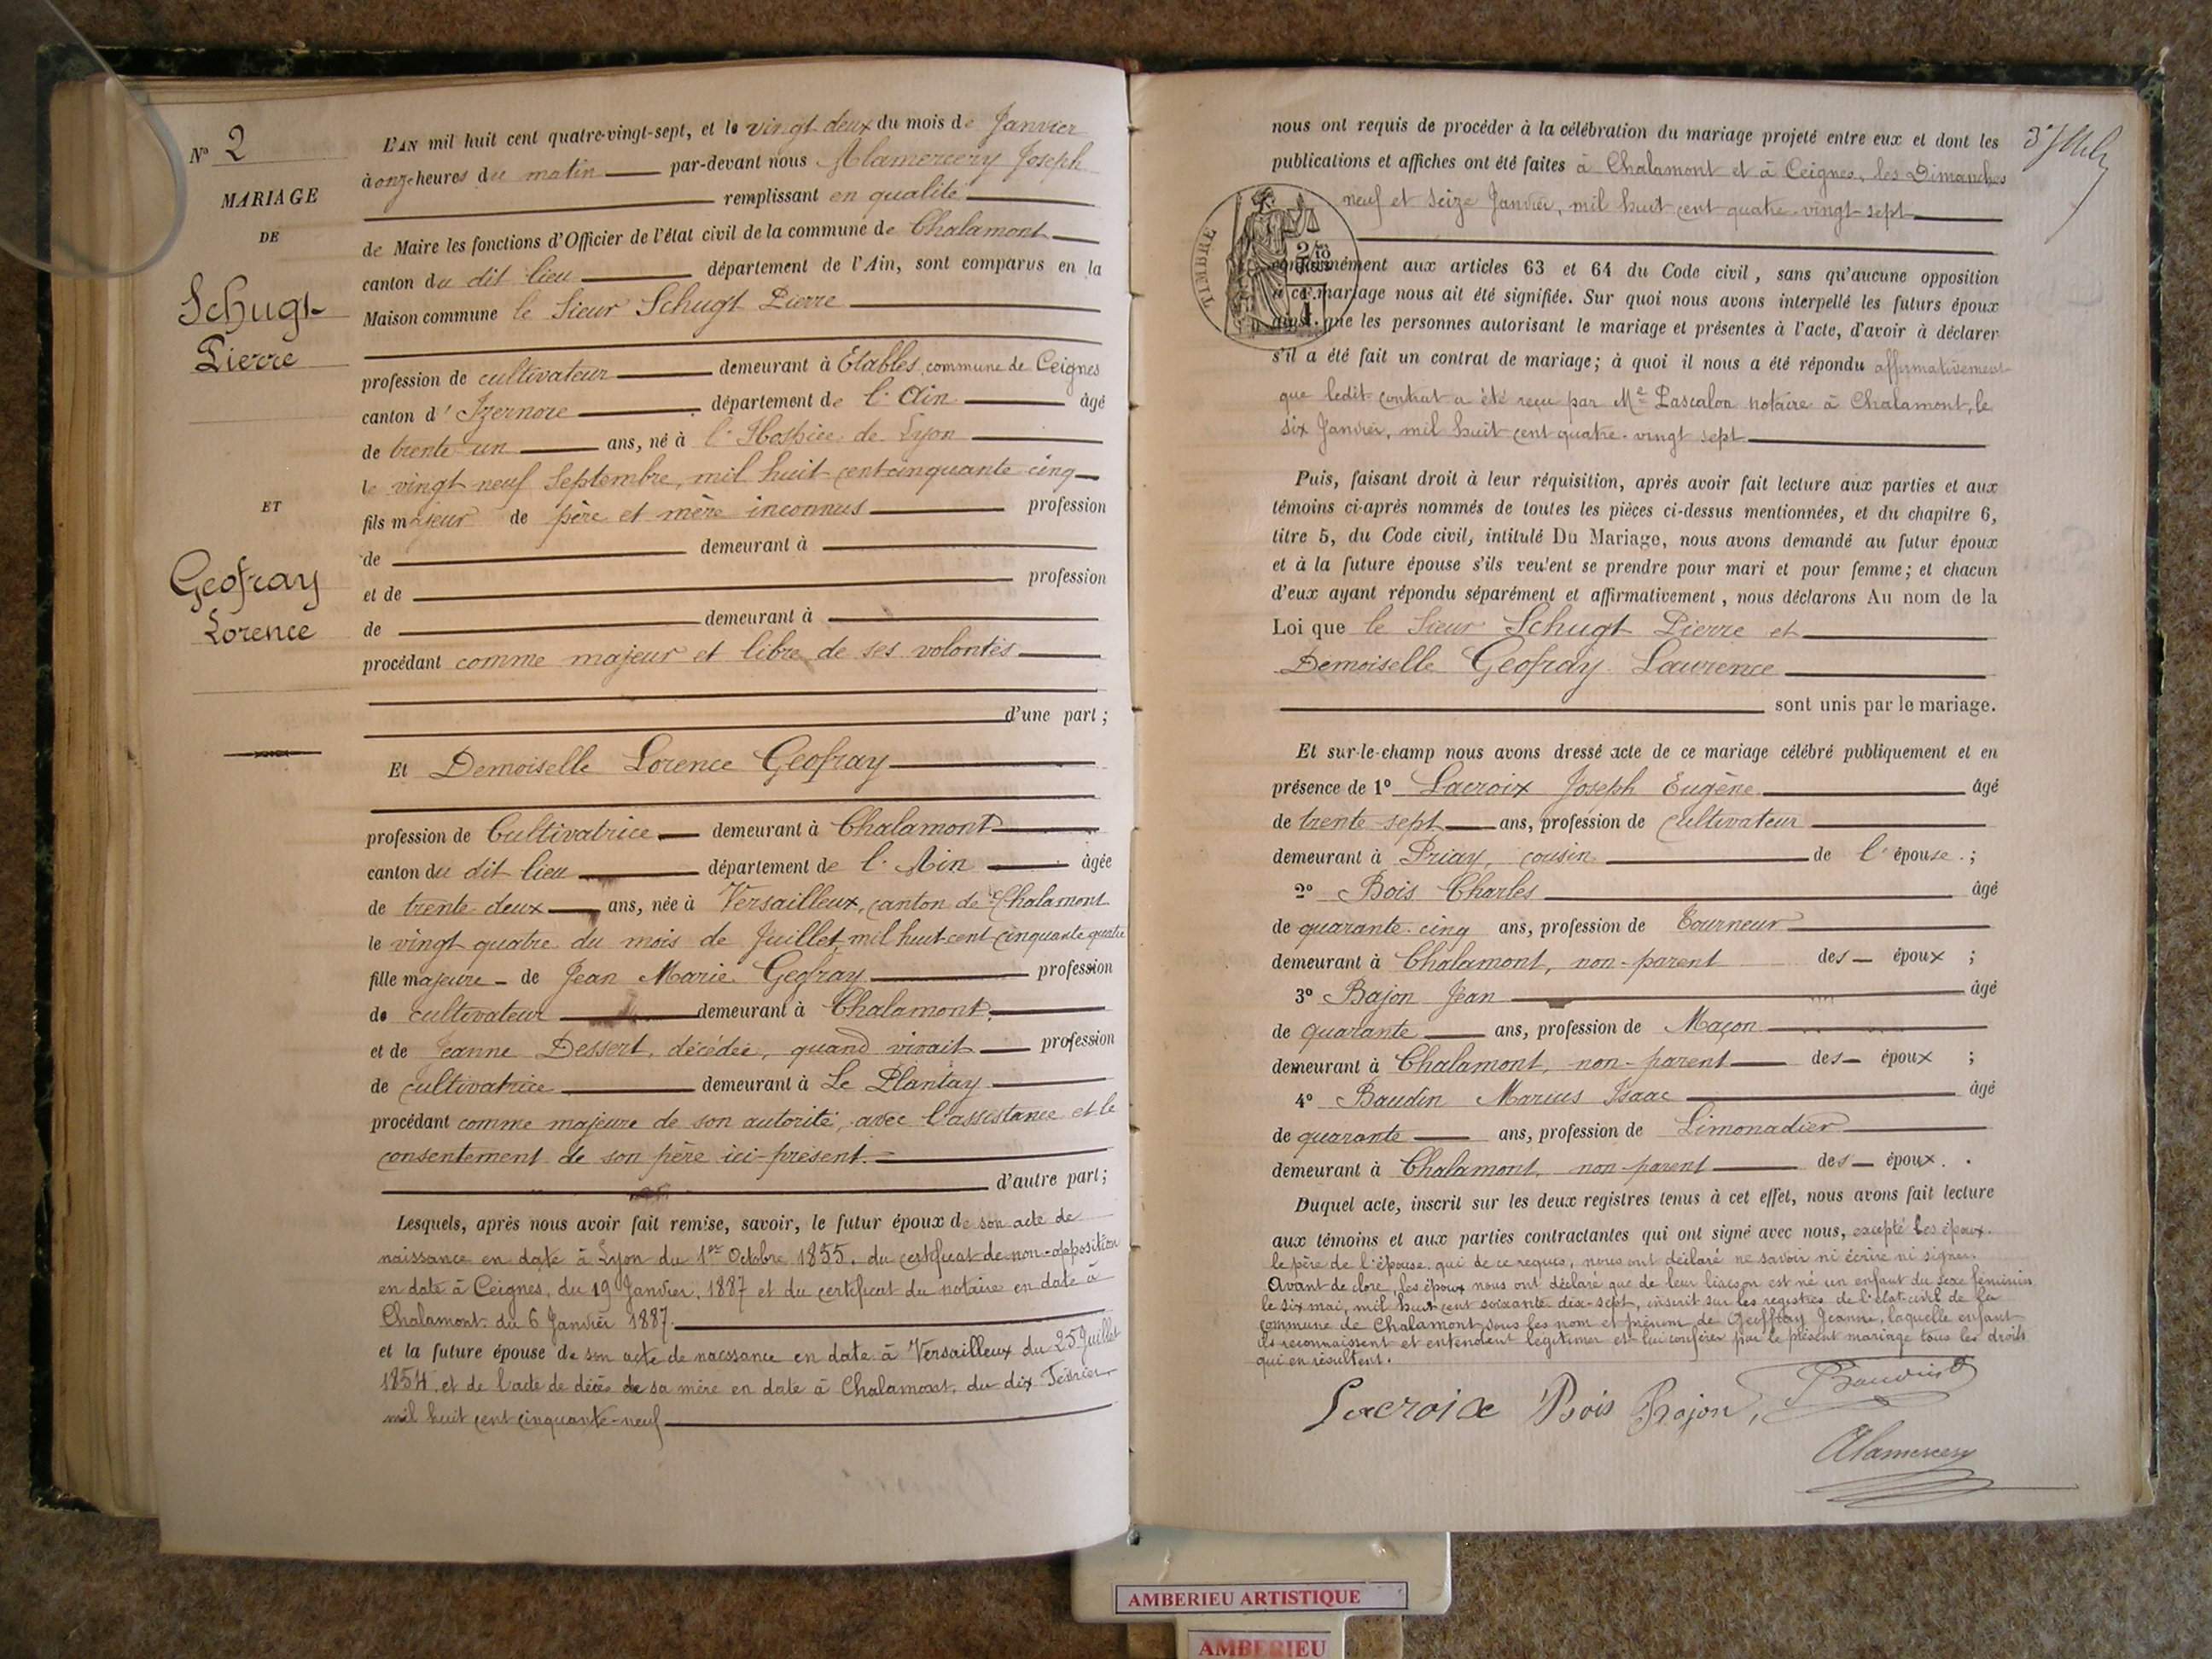 N° 2
MARIAGE
DE
Schugt
Pierre
ET
Geofray
Lorence
L'AN mil huit cent quatre-vingt-sept, et le vingt deux du mois de Janvier
à onze heures du matin par-devant nous Alamercery Joseph
remplissant en qualité
de Maire les fonctions d'Officier de l'état civil de la commune de Chalamont
canton du dit lieu département de l'Ain, sont comparus en la
Maison commune le Sieur Schugt Pierre
profession de cultivateur demeurant à Etables, commune de Ceignes
canton d'Izernore département de l'Ain âgé
de trente un ans, né à l'Hospice de Lyon
le vingt neuf Septembre, mil huit cent cinquante cinq
fils majeur de père et mère inconnus profession
de demeurant à
et de profession
de demeurant à
procédant comme majeur et libre de ses volontés
d'une part;
Et Demoiselle Lorence Geofray
profession de Cultivatrice demeurant à Chalamont
canton du dit lieu département de l'Ain âgée
de trente deux ans, née à Versailleux, canton de Chalamont
le vingt quatre du mois de Juillet, mil huit cent cinquante quatre
fille majeure de Jean Marie Geofray profession
de cultivateur demeurant à Chalamont
et de Jeanne Dessert, décédée, quand vivait profession
de cultivatrice demeurant à Le Plantay
procédant comme majeure de son autorité, avec l'assistance et le
consentement de son père ici-présent.
d'autre part;
Lesquels, après nous avoir fait remise, savoir, le futur époux de son acte de
naissance en date à Lyon du 1er Octobre 1855, du certificat de non-opposition
en date à Ceignes, du 19 Janvier, 1887 et du certificat du notaire en date à
Chalamont du 6 Janvier 1887.
et la future épouse de son acte de naissance en date à Versailleux du 25 Juillet
1854, et de l'acte de décès de sa mère en date à Chalamont, du dix Février
mil huit cent cinquante-neuf
nous ont requis de procéder à la célébration du mariage projeté entre eux et dont les
publications et affiches ont été faites à Chalamont et à Ceignes, les Dimanches
neuf et seize Janvier, mil huit cent quatre-vingt-sept
TIMBRE
conformément aux articles 63 et 64 du Code civil, sans qu'aucune opposition
à ce mariage nous ait été signifiée. Sur quoi nous avons interpellé les futurs époux
ainsi que les personnes autorisant le mariage et présentes à l'acte, d'avoir à déclarer
s'il a été fait un contrat de mariage; à quoi il nous a été répondu affirmativement
que ledit contrat a été reçu par Me Pascalon notaire à Chalamont, le
six Janvier, mil huit cent quatre-vingt sept
Puis, faisant droit à leur réquisition, après avoir fait lecture aux parties et aux
témoins ci-après nommés de toutes les pièces ci-dessus mentionnées, et du chapitre 6,
titre 5, du Code civil, intitulé Du Mariage, nous avons demandé au futur époux
et à la future épouse s'ils veulent se prendre pour mari et pour femme; et chacun
d'eux ayant répondu séparément et affirmativement, nous déclarons Au nom de la
Loi que le Sieur Schugt Pierre et
Demoiselle Geofray Laurence
sont unis par le mariage.
Et sur-le-champ nous avons dressé acte de ce mariage célébré publiquement et en
présence de 1° Lacroix Joseph Eugène âgé
de trente sept ans, profession de cultivateur
demeurant à Priay, cousin de l'épouse;
2° Bois Charles âgé
de quarante-cinq ans, profession de Tourneur
demeurant à Chalamont, non-parent des époux;
3° Bajon Jean âgé
de quarante ans, profession de Maçon
demeurant à Chalamont, non-parent des époux;
4° Baudin Marius Isaac âgé
de quarante ans, profession de Limonadier
demeurant à Chalamont, non-parent des époux.
Duquel acte, inscrit sur les deux registres tenus à cet effet, nous avons fait lecture
aux témoins et aux parties contractantes qui ont signé avec nous, excepté les époux
le père de l'épouse qui de ce requis, nous ont déclaré ne savoir ni écrire ni signer.
Avant de clore, les époux nous ont déclaré que de leur liaison est né un enfant du sexe féminin
le six mai, mil huit cent soixante dix-sept, inscrit sur les registres de l'état-civil de la
commune de Chalamont sous les nom et prénom de Geoffray Jeanne, laquelle enfant
ils reconnaissent et entendent légitimer et lui conférer par le présent mariage tous les droits
qui en résultent.
Lacroix Bois Bajon, Baudin
Alamercery
AMBERIEU ARTISTIQUE
AMBERIEU